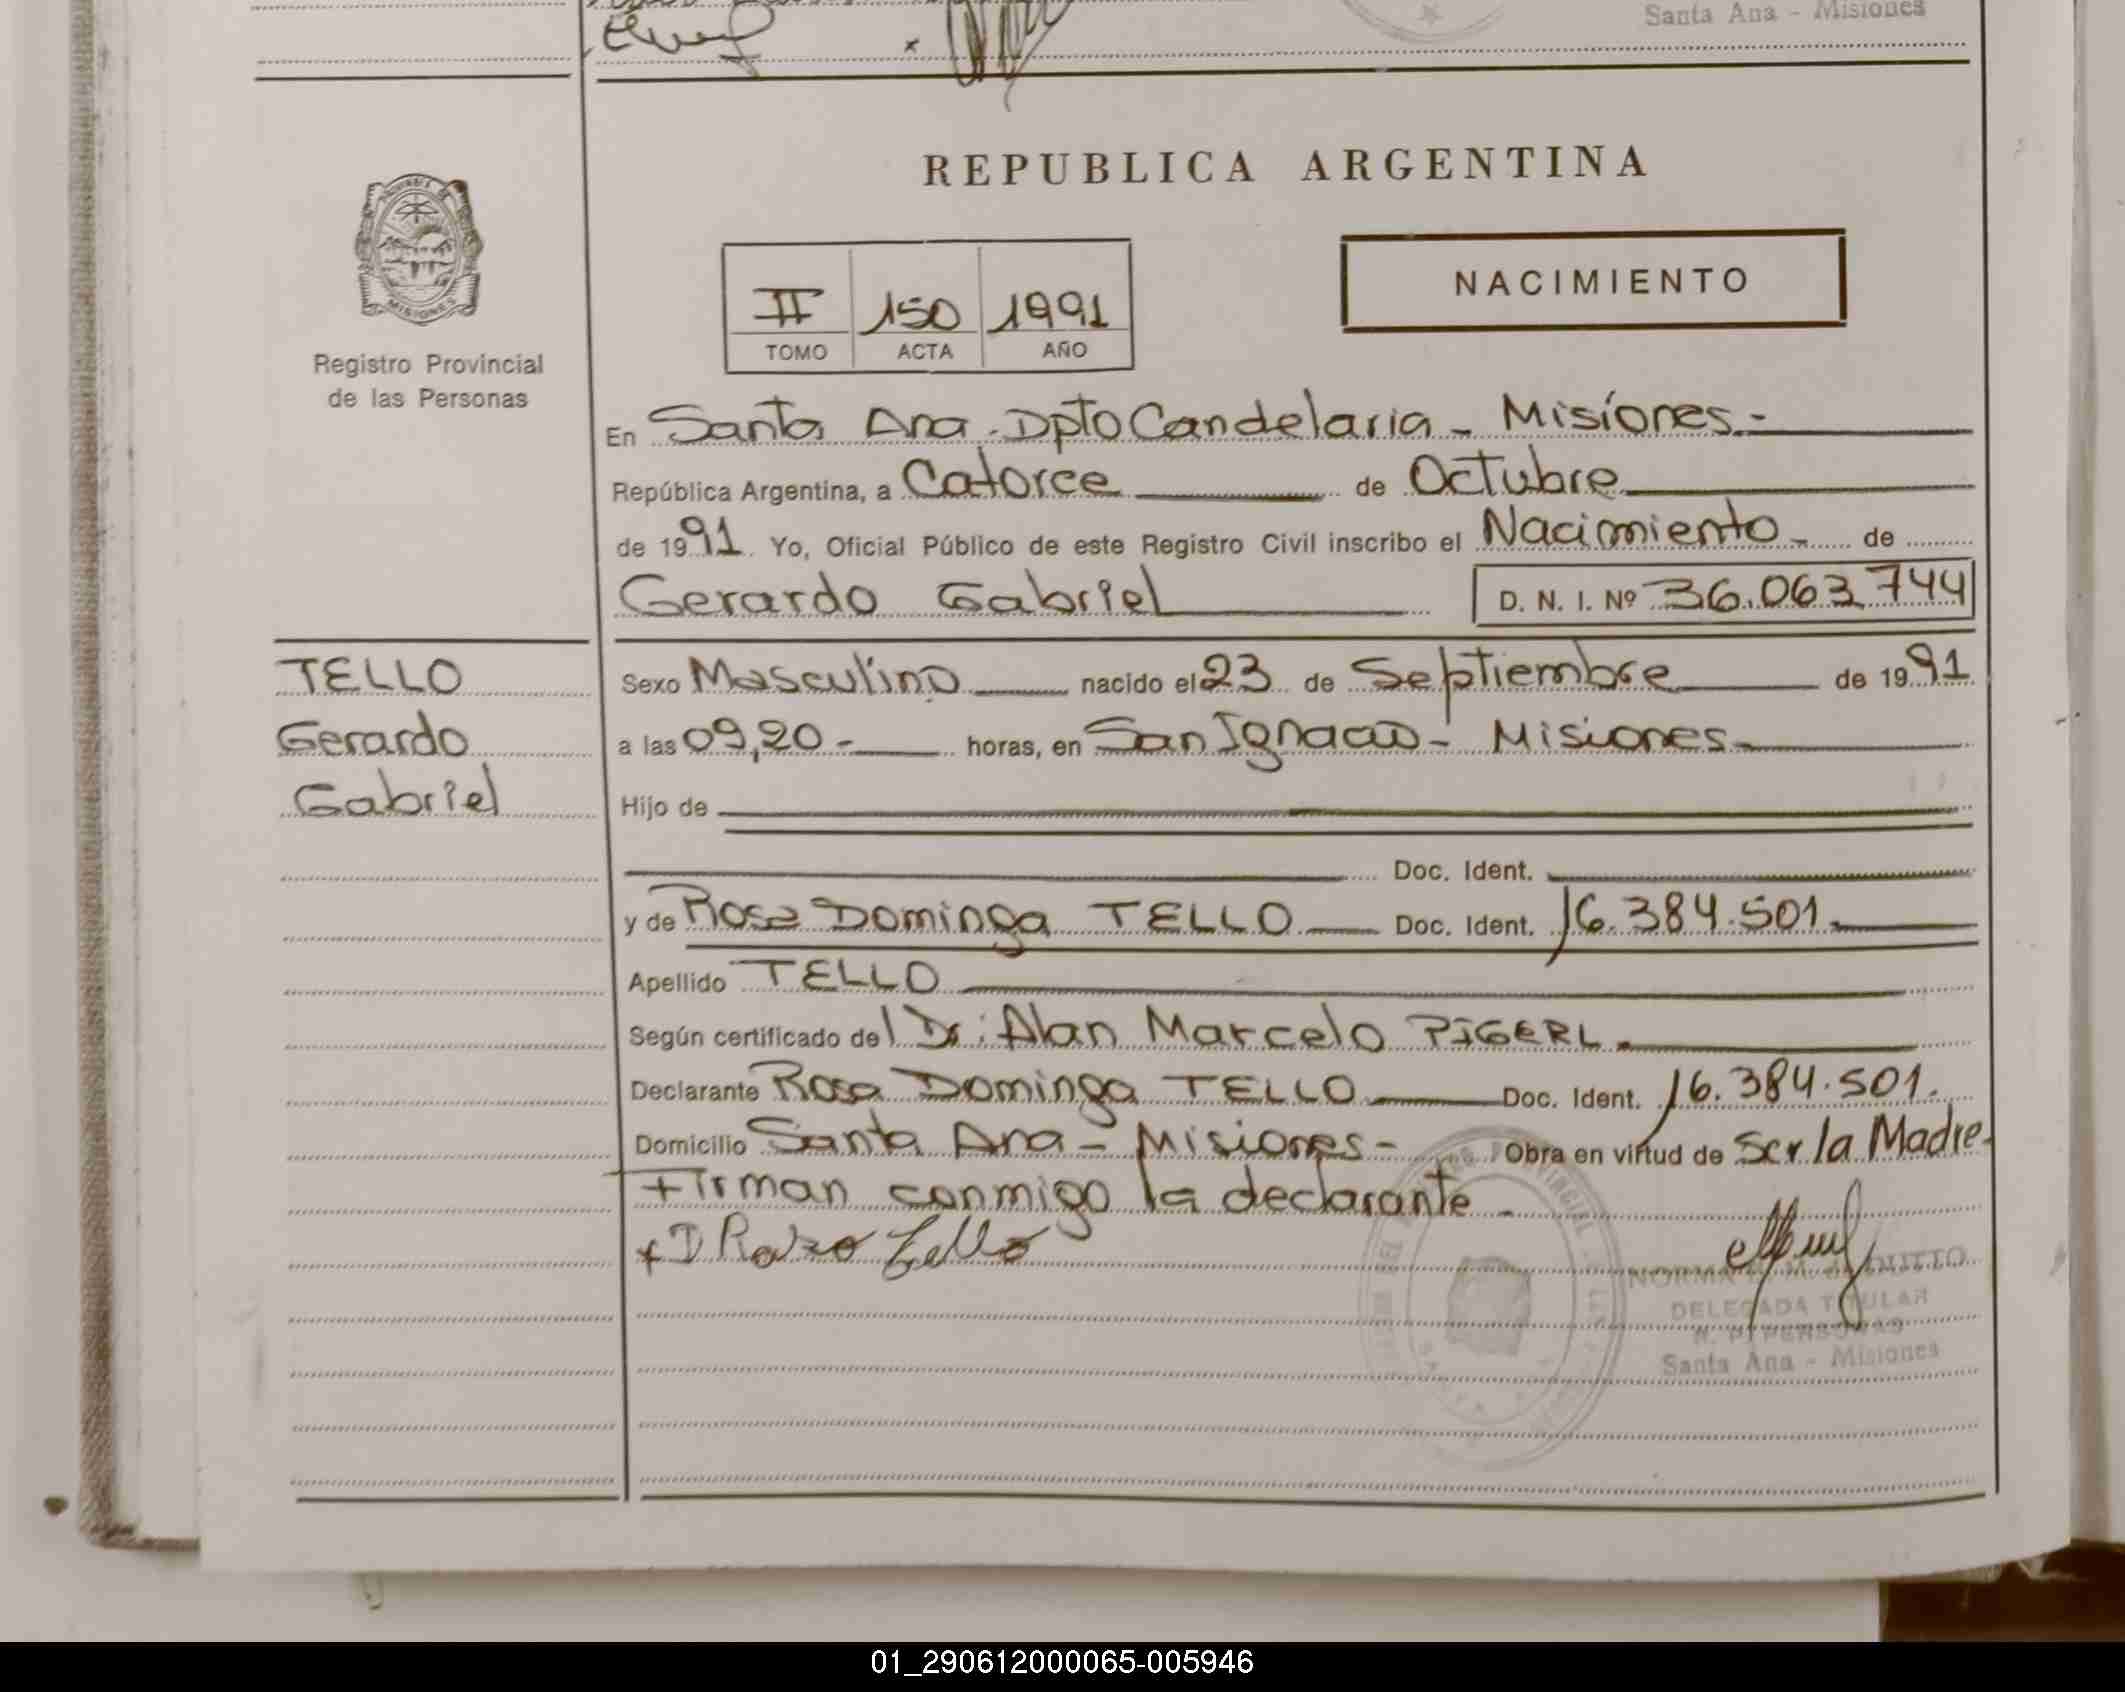 Santa Ana - Misiones
REPUBLICA ARGENTINA
NACIMIENTO
MISIONES
II 150 1991
TOMO ACTA AÑO
Registro Provincial
de las Personas
En Santa Ana. Dpto Candelaria - Misiones.-
República Argentina, a Catorce de Octubre
de 1991 Yo, Oficial Público de este Registro Civil inscribo el Nacimiento - de
Gerardo Gabriel D. N. I. Nº 36.063.744
TELLO
Gerardo
Gabriel
Sexo Masculino nacido el 23 de Septiembre de 1991
a las 09,20.- horas, en San Ignacio - Misiones -
Hijo de
Doc. Ident.
y de Rosa Dominga TELLO Doc. Ident. 16.384.501.
Apellido TELLO
Según certificado del Dr: Alan Marcelo PIGERL.
Declarante Rosa Dominga TELLO Doc. Ident. 16.384.501.
Domicilio Santa Ana - Misiones - Obra en virtud de Ser la Madre.
Firman conmigo la declarante -
Tello
NORMA
DELEGADA TITULAR
R. P. PERSONAS
Santa Ana - Misiones
01_290612000065-005946